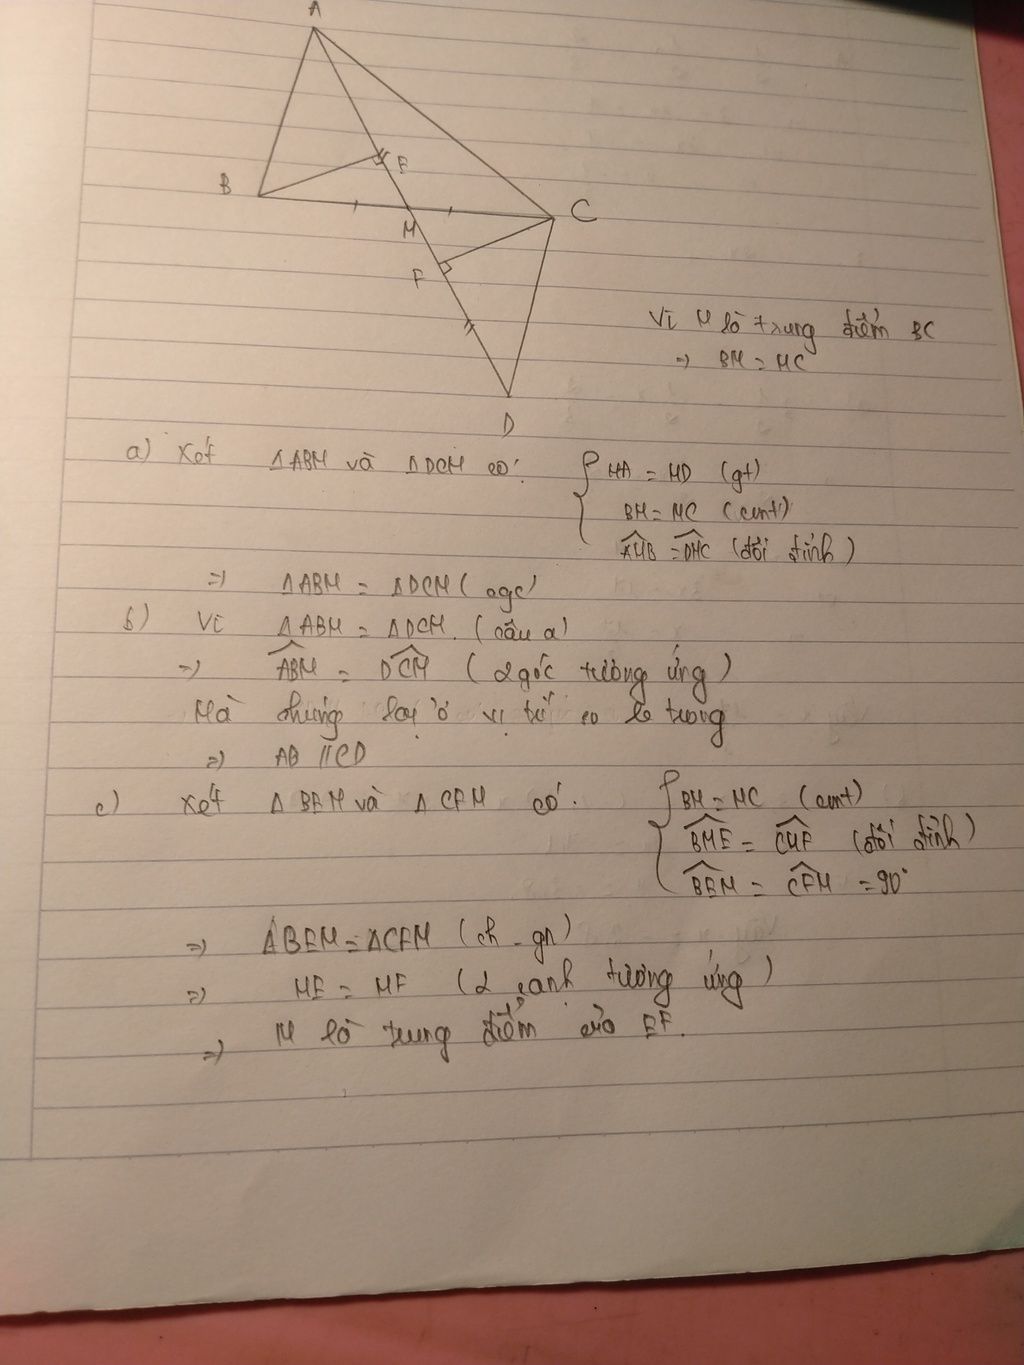 A
B
E
C
M
F
D
Vì M là trung điểm BC
=> BM = MC
a) Xét ΔABM và ΔDCM có: { MA = MD (gt)
BM = MC (cmt)
AMB = DMC (đối đỉnh)
=> ΔABM = ΔDCM (cgc)
b) Vì ΔABM = ΔDCM. (câu a)
=> ABM = DCM (2 góc tương ứng)
Mà chúng lại ở vị trí so le trong
=> AB // CD
c) Xét Δ BEM và Δ CFM có. { BM = MC (cmt)
BME = CMF (đối đỉnh)
BEM = CFM = 90°
=> ΔBEM = ΔCFM (ch - gn)
=> ME = MF (2 cạnh tương ứng)
=> M là trung điểm của EF.